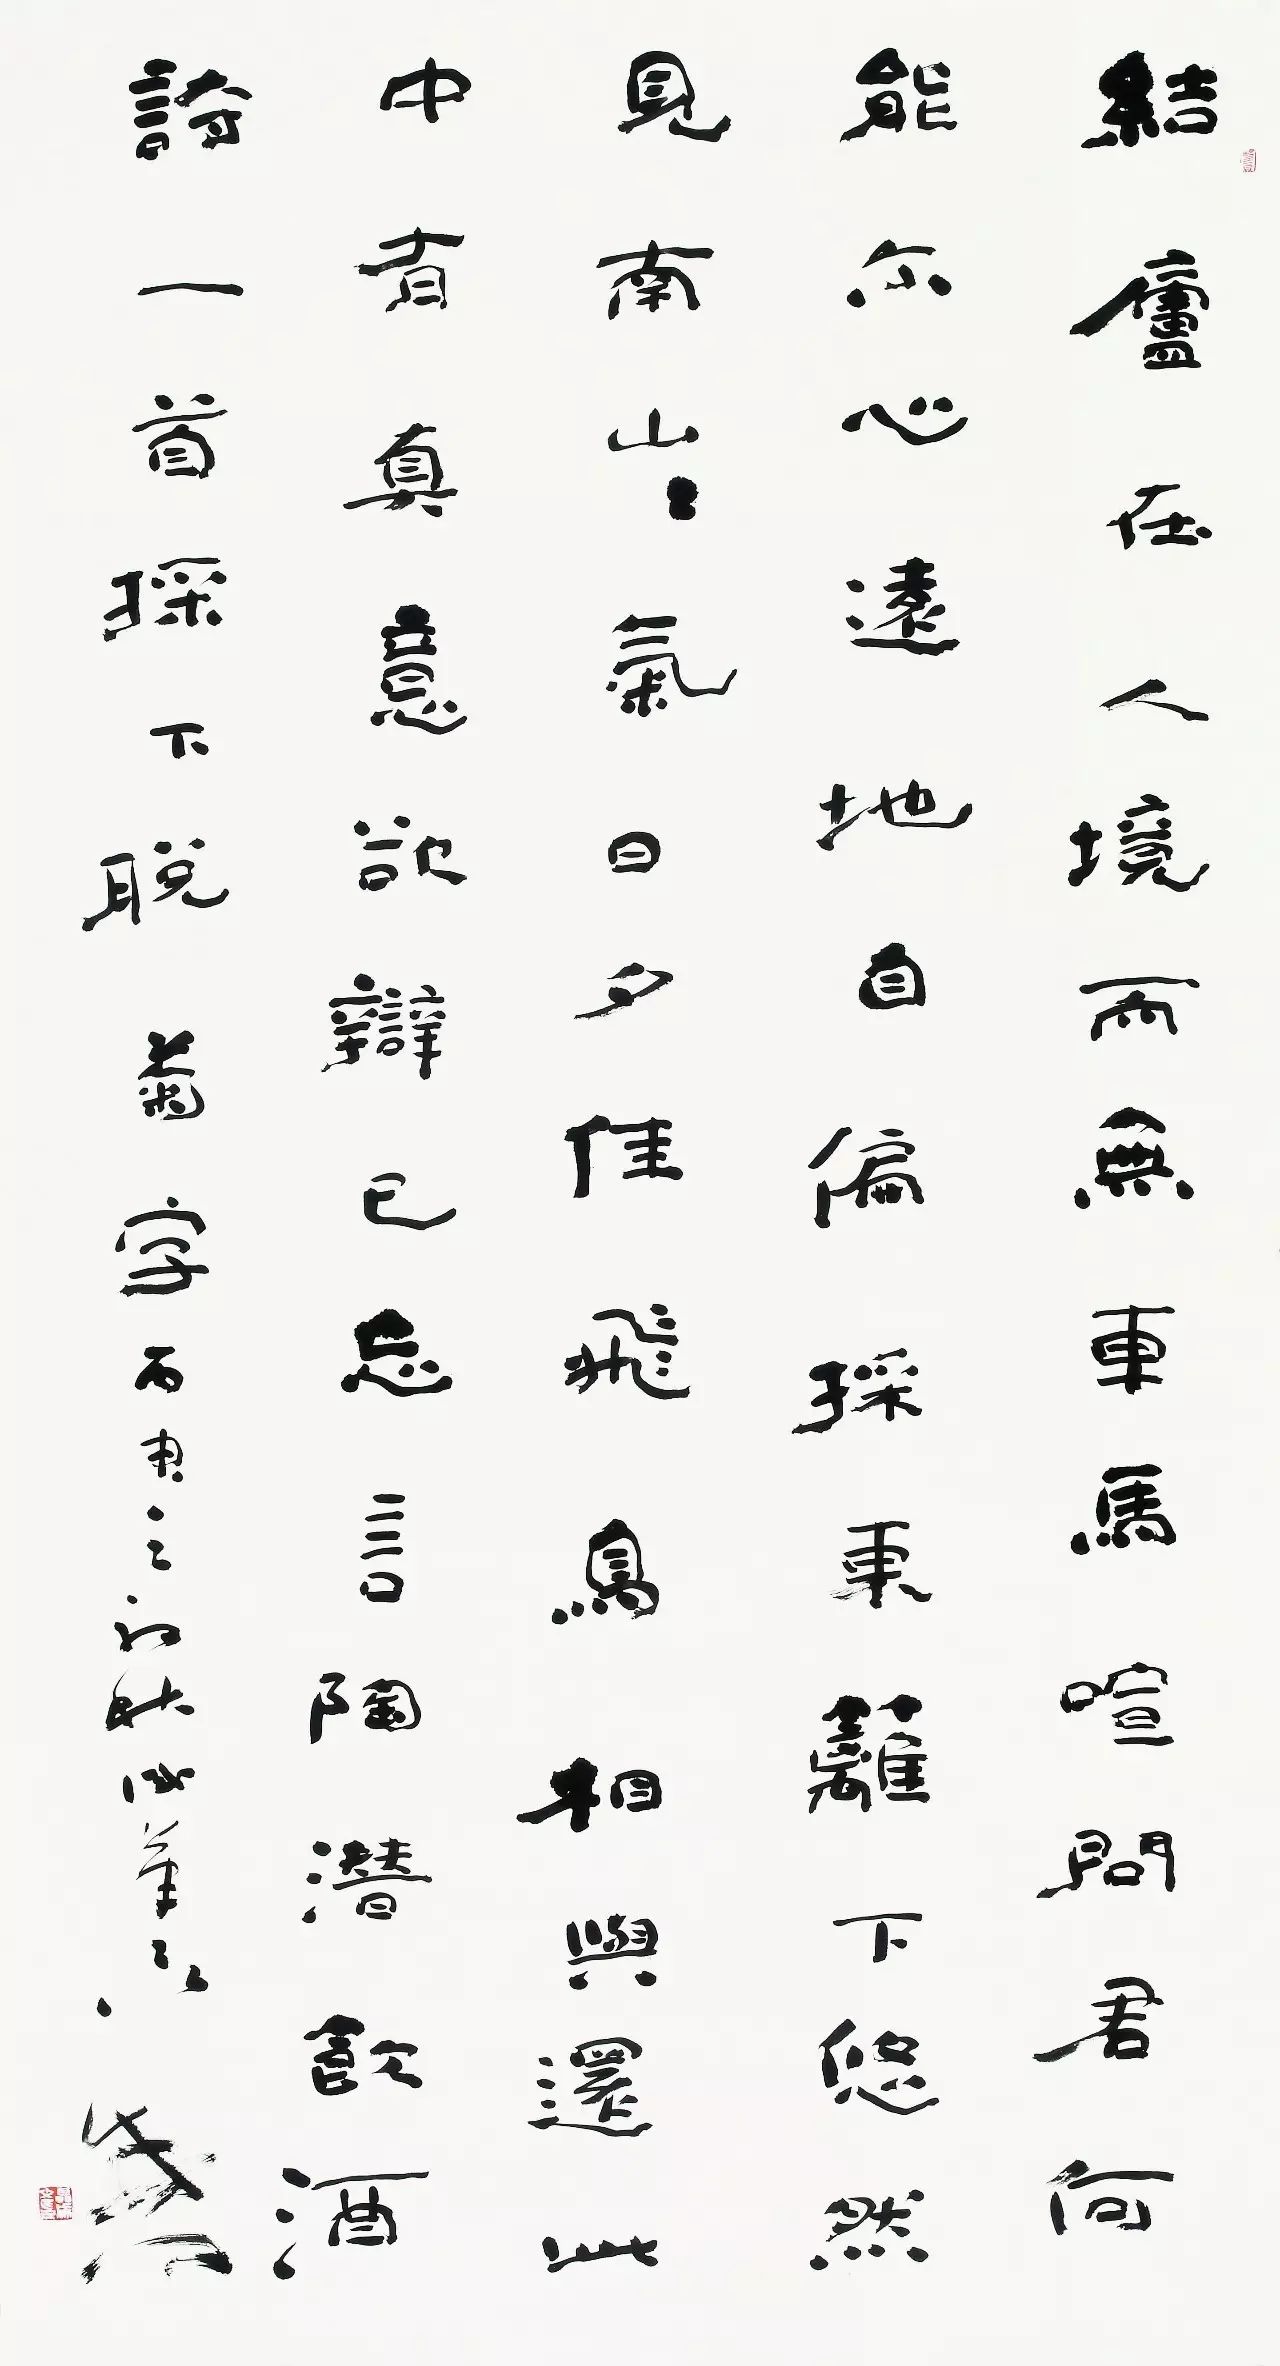 結廬在人境而無車馬喧問君何
能尔心遠地自偏採東籬下悠然
見南山〻氣日夕佳飛鳥相與還此
中有真意欲辯已忘言陶潜飲酒
詩一首採下脱菊字丙之初秋